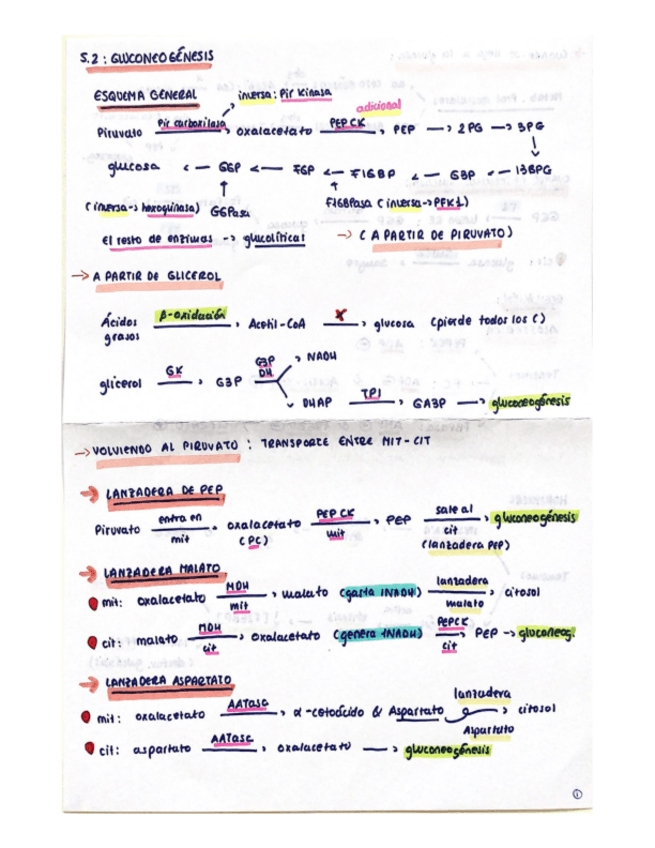 5.2 : GLUCONEOGÉNESIS
ESQUEMA GENERAL
inversa: Pir Kinasa
Piruvato Pir carboxilasa oxalacetato adicional PEPCK PEP → 2PG → 3PG
glucosa ← G6P ← F6P ← F16BP ← G3P ← 13BPG
(inversa→ hexoquinasa) G6Pasa F16BPasa (inversa→PFK1)
El resto de enzimas → glucolítica! → (A PARTIR DE PIRUVATO)
→ A PARTIR DE GLICEROL
Ácidos grasos β-oxidación Acetil-CoA X glucosa (pierde todos los C)
glicerol GK G3P G3P DH NADH
DHAP TPI GA3P → gluconeogénesis
→ VOLVIENDO AL PIRUVATO : TRANSPORTE ENTRE MIT-CIT
→ LANZADERA DE PEP
Piruvato entra en mit oxalacetato (PC) PEPCK mit PEP sale al cit gluconeogénesis
(lanzadera PEP)
→ LANZADERA MALATO
mit: oxalacetato MDH mit malato (gasta 1NADH) lanzadera malato citosol
cit: malato MDH cit oxalacetato (genera 1NADH) PEPCK cit PEP → gluconeog.
→ LANZADERA ASPARTATO
mit: oxalacetato AATasa α-cetoácido & Aspartato lanzadera Aspartato citosol
cit: aspartato AATasa oxalacetato → gluconeogénesis
1